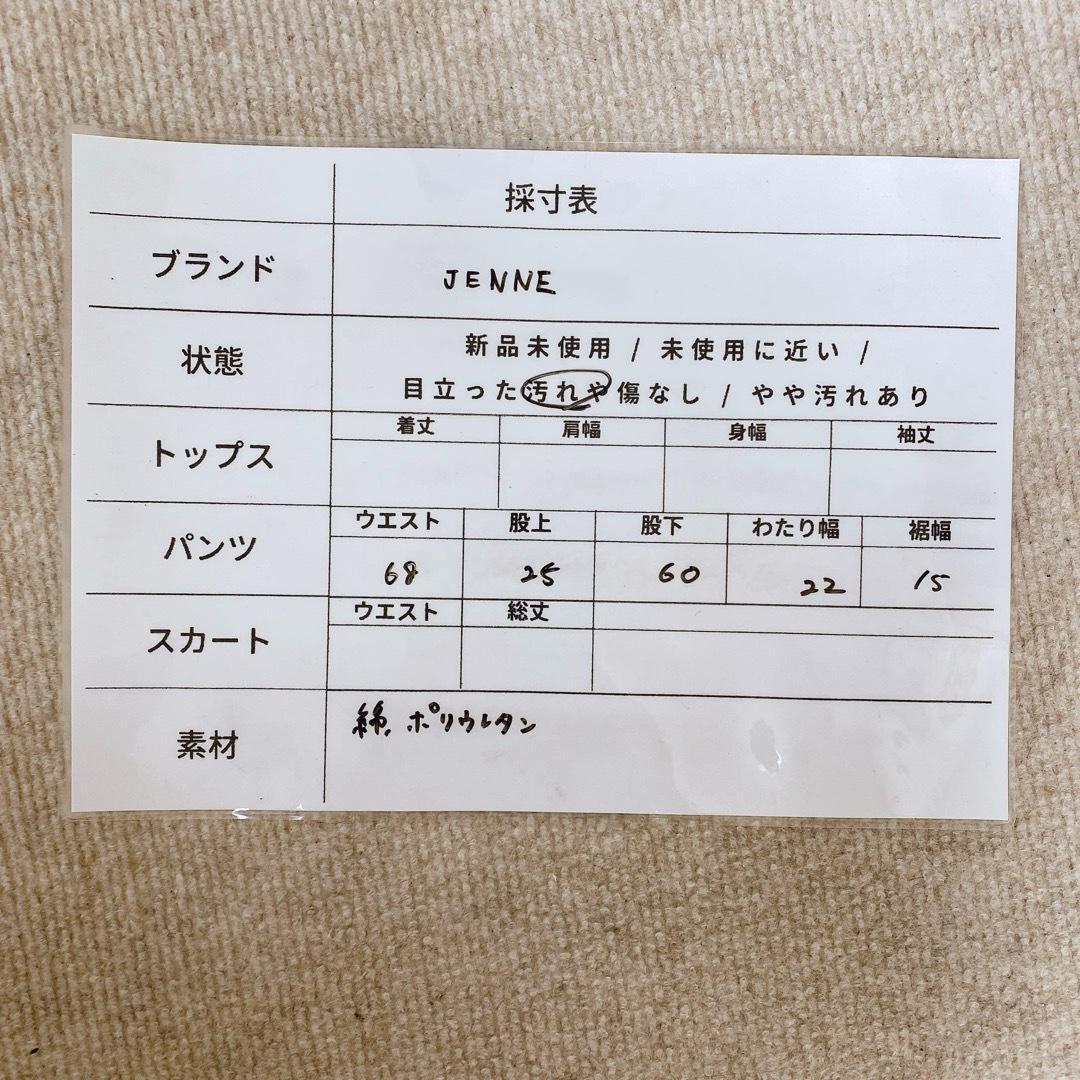 採寸表
ブランド JENNE
状態 新品未使用 / 未使用に近い /
目立った汚れや傷なし / やや汚れあり
トップス 着丈 肩幅 身幅 袖丈
パンツ ウエスト 股上 股下 わたり幅 裾幅
68 25 60 22 15
スカート ウエスト 総丈
素材 綿、ポリウレタン